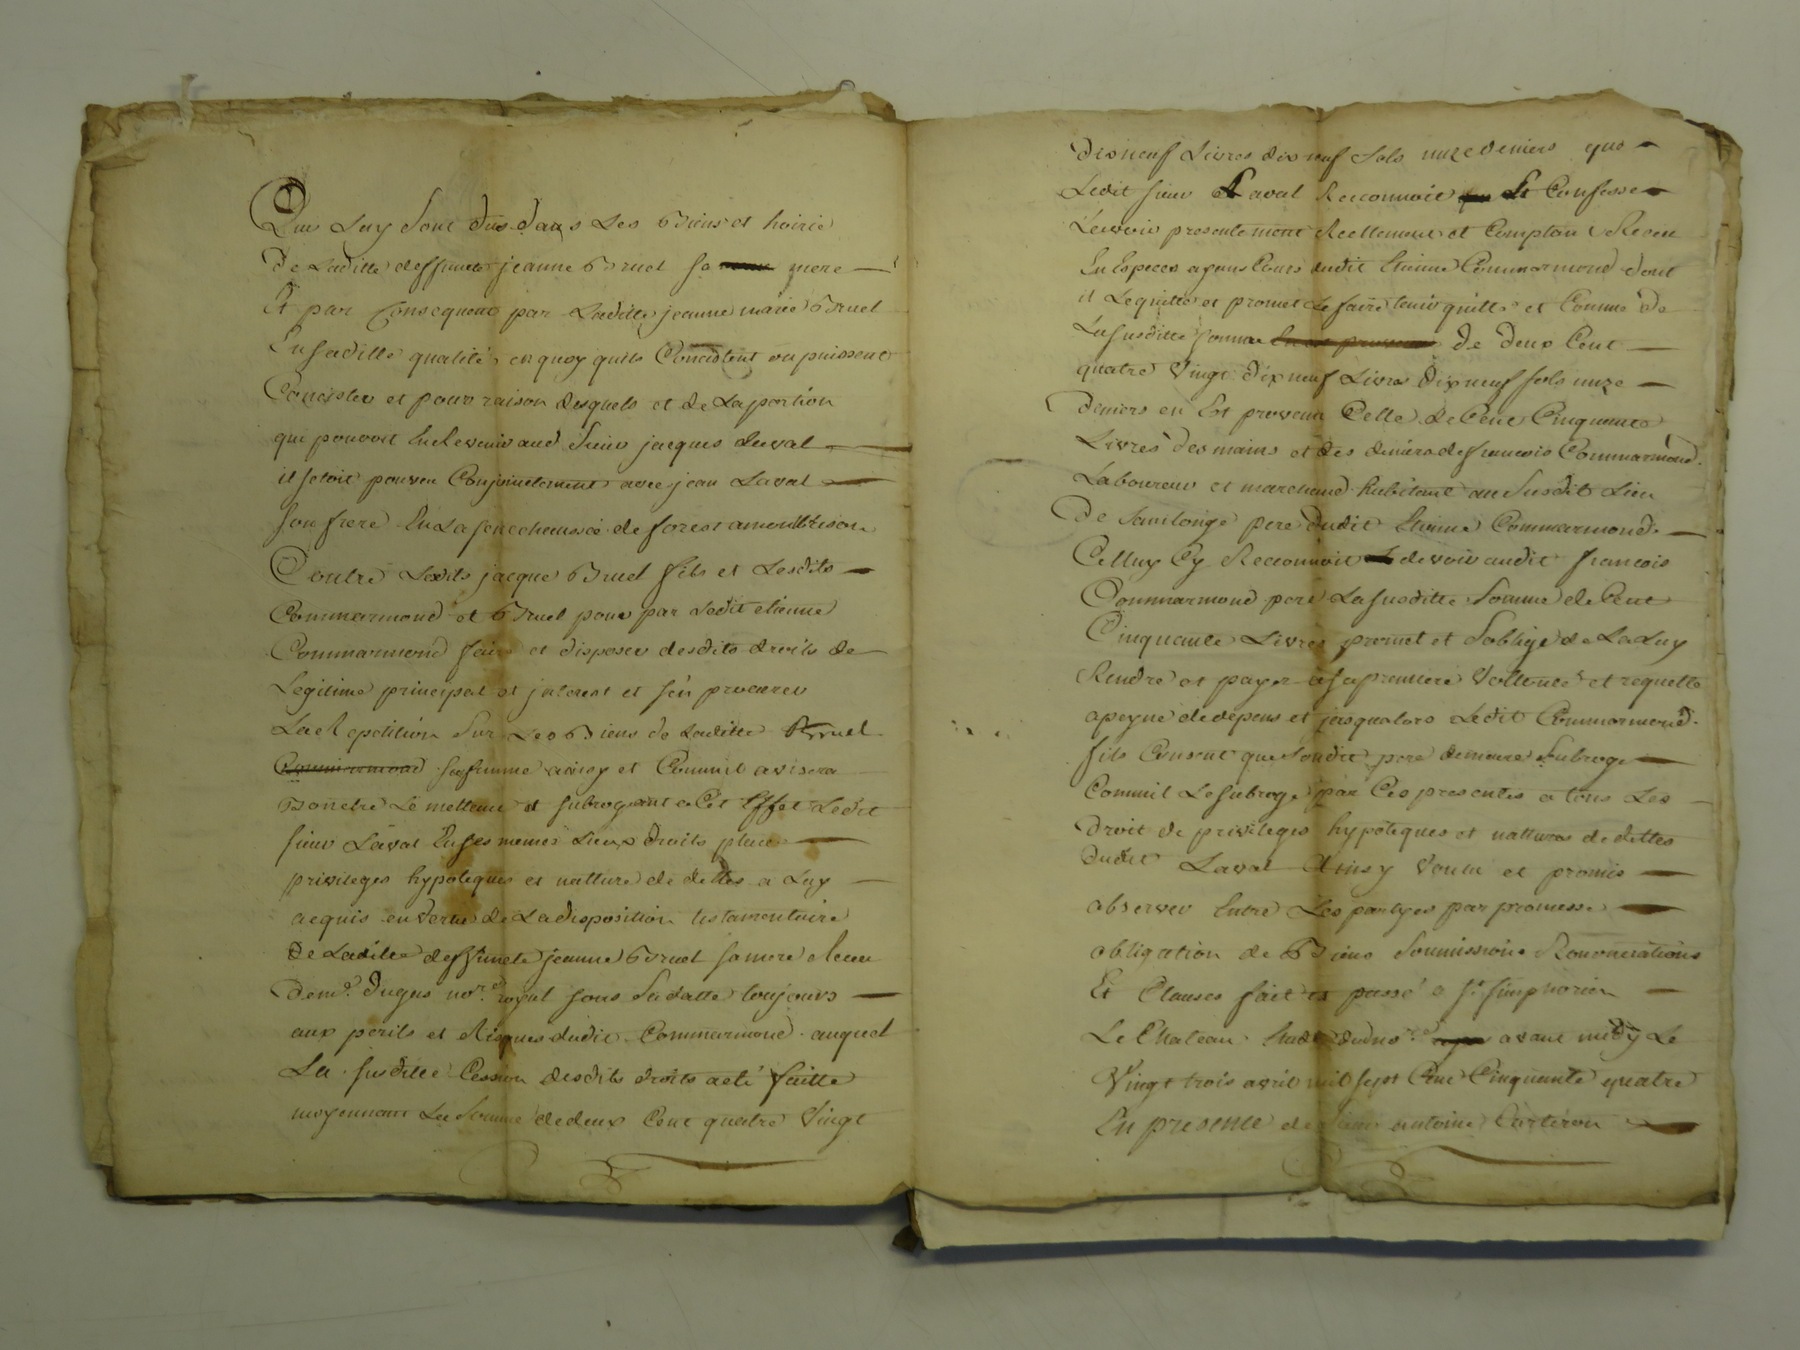 Qui Luy Sont dus dans Les Biens et hoirie
De Laditte deffunte jeanne Bruel sa mere
Et par Consequent par Laditte jeanne marie Bruel
En saditte qualité, en quoy quils Concistent ou puissent
Concister et pour raison desquels et de La portion
qui pouvoit En Revenir aud. Sieur jacques Laval
il setoit pourveu Conjointement avec jean Laval
son frere En La senechaussée de forest a montbrison
Contre Lesdits jacque Bruel fils et Lesdits
Commarmond et Bruel pour par Ledit etienne
Commarmond faire et disposer desdits droits de
Legitime principal et jnterest et s'en procurer
La Repetition Sur Les Biens de Laditte Bruel
Commarmond sa femme ainsy et Commil avisera
Bon etre Le mettant et subrogeant a Cet Effet Ledit
sieur Laval En ses memes Lieux droits place
privileges hypoteques et natture de dettes a Luy
acquis en Vertu de La disposition testamentaire
de Laditte deffunte jeanne Bruel sa mere Receu
de me. Dugas nore. royal sous Sa datte toujours
aux perils et Risques dudit Commarmond auquel
La susditte Cession desdits droits a eté faitte
moyennant La Somme de deux Cent quatre Vingt
dixneuf Livres dix neuf Sols onze deniers que
Ledit sieur Laval Reconnoit Et Confesse
Levoir presentement Reellement et Comptant Receu
En Especes ayant Cours dudit Etienne Commarmond dont
il Le quitte et promet Le faire tenir quitte et Comme de
La susditte somme En est provenu de deux Cent
quatre Vingt dixneuf Livres dixneuf sols onze
deniers en Est provenu Celle de Cent Cinquante
Livres des mains et des deniers de francois Commarmond
Laboureur et marchand habitant au Susdit Lieu
De Saint longe pere dudit Etienne Commarmond
Celluy Cy Reconnoit devoir audit francois
Commarmond pere La susditte Somme de Cent
Cinquante Livres promet et Soblige de La Luy
Rendre et payer a sa premiere Vollonté et requette
a peyne de depens et jusqualors Ledit Commarmond
fils Consent que Sondit pere demeure Subrogé
Commil Le subroge par Ces presentes a tous Les
droit de privileges hypoteques et nattures de dettes
dudit Laval Ainsy Voulu et promis
observer Entre Les partyes par promesse
obligation de Biens Soumissions Renonciations
Et Clauses fait et passé a St simphorien
Le Chateau Etude dud nore avant midy Le
Vingt trois avril mil sept Cent Cinquante quatre
En presence de Sieur antoine Carteron